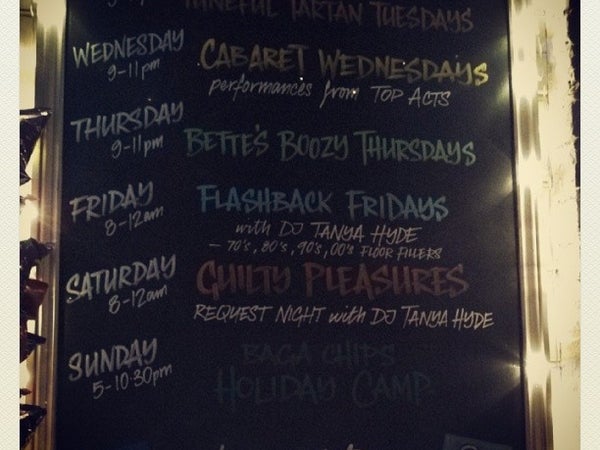 TUNEFUL TARTAN TUESDAYS
WEDNESDAY
9-11pm
CABARET WEDNESDAYS
performances from TOP ACTS
THURSDAY
9-11pm
BETTE'S BOOZY THURSDAYS
FRIDAY
8-12am
FLASHBACK FRIDAYS
with DJ TANYA HYDE
- 70's, 80's, 90's, 00's FLOOR FILLERS
SATURDAY
8-12am
GUILTY PLEASURES
REQUEST NIGHT with DJ TANYA HYDE
SUNDAY
5-10·30pm
BAGA CHIPS
HOLIDAY CAMP